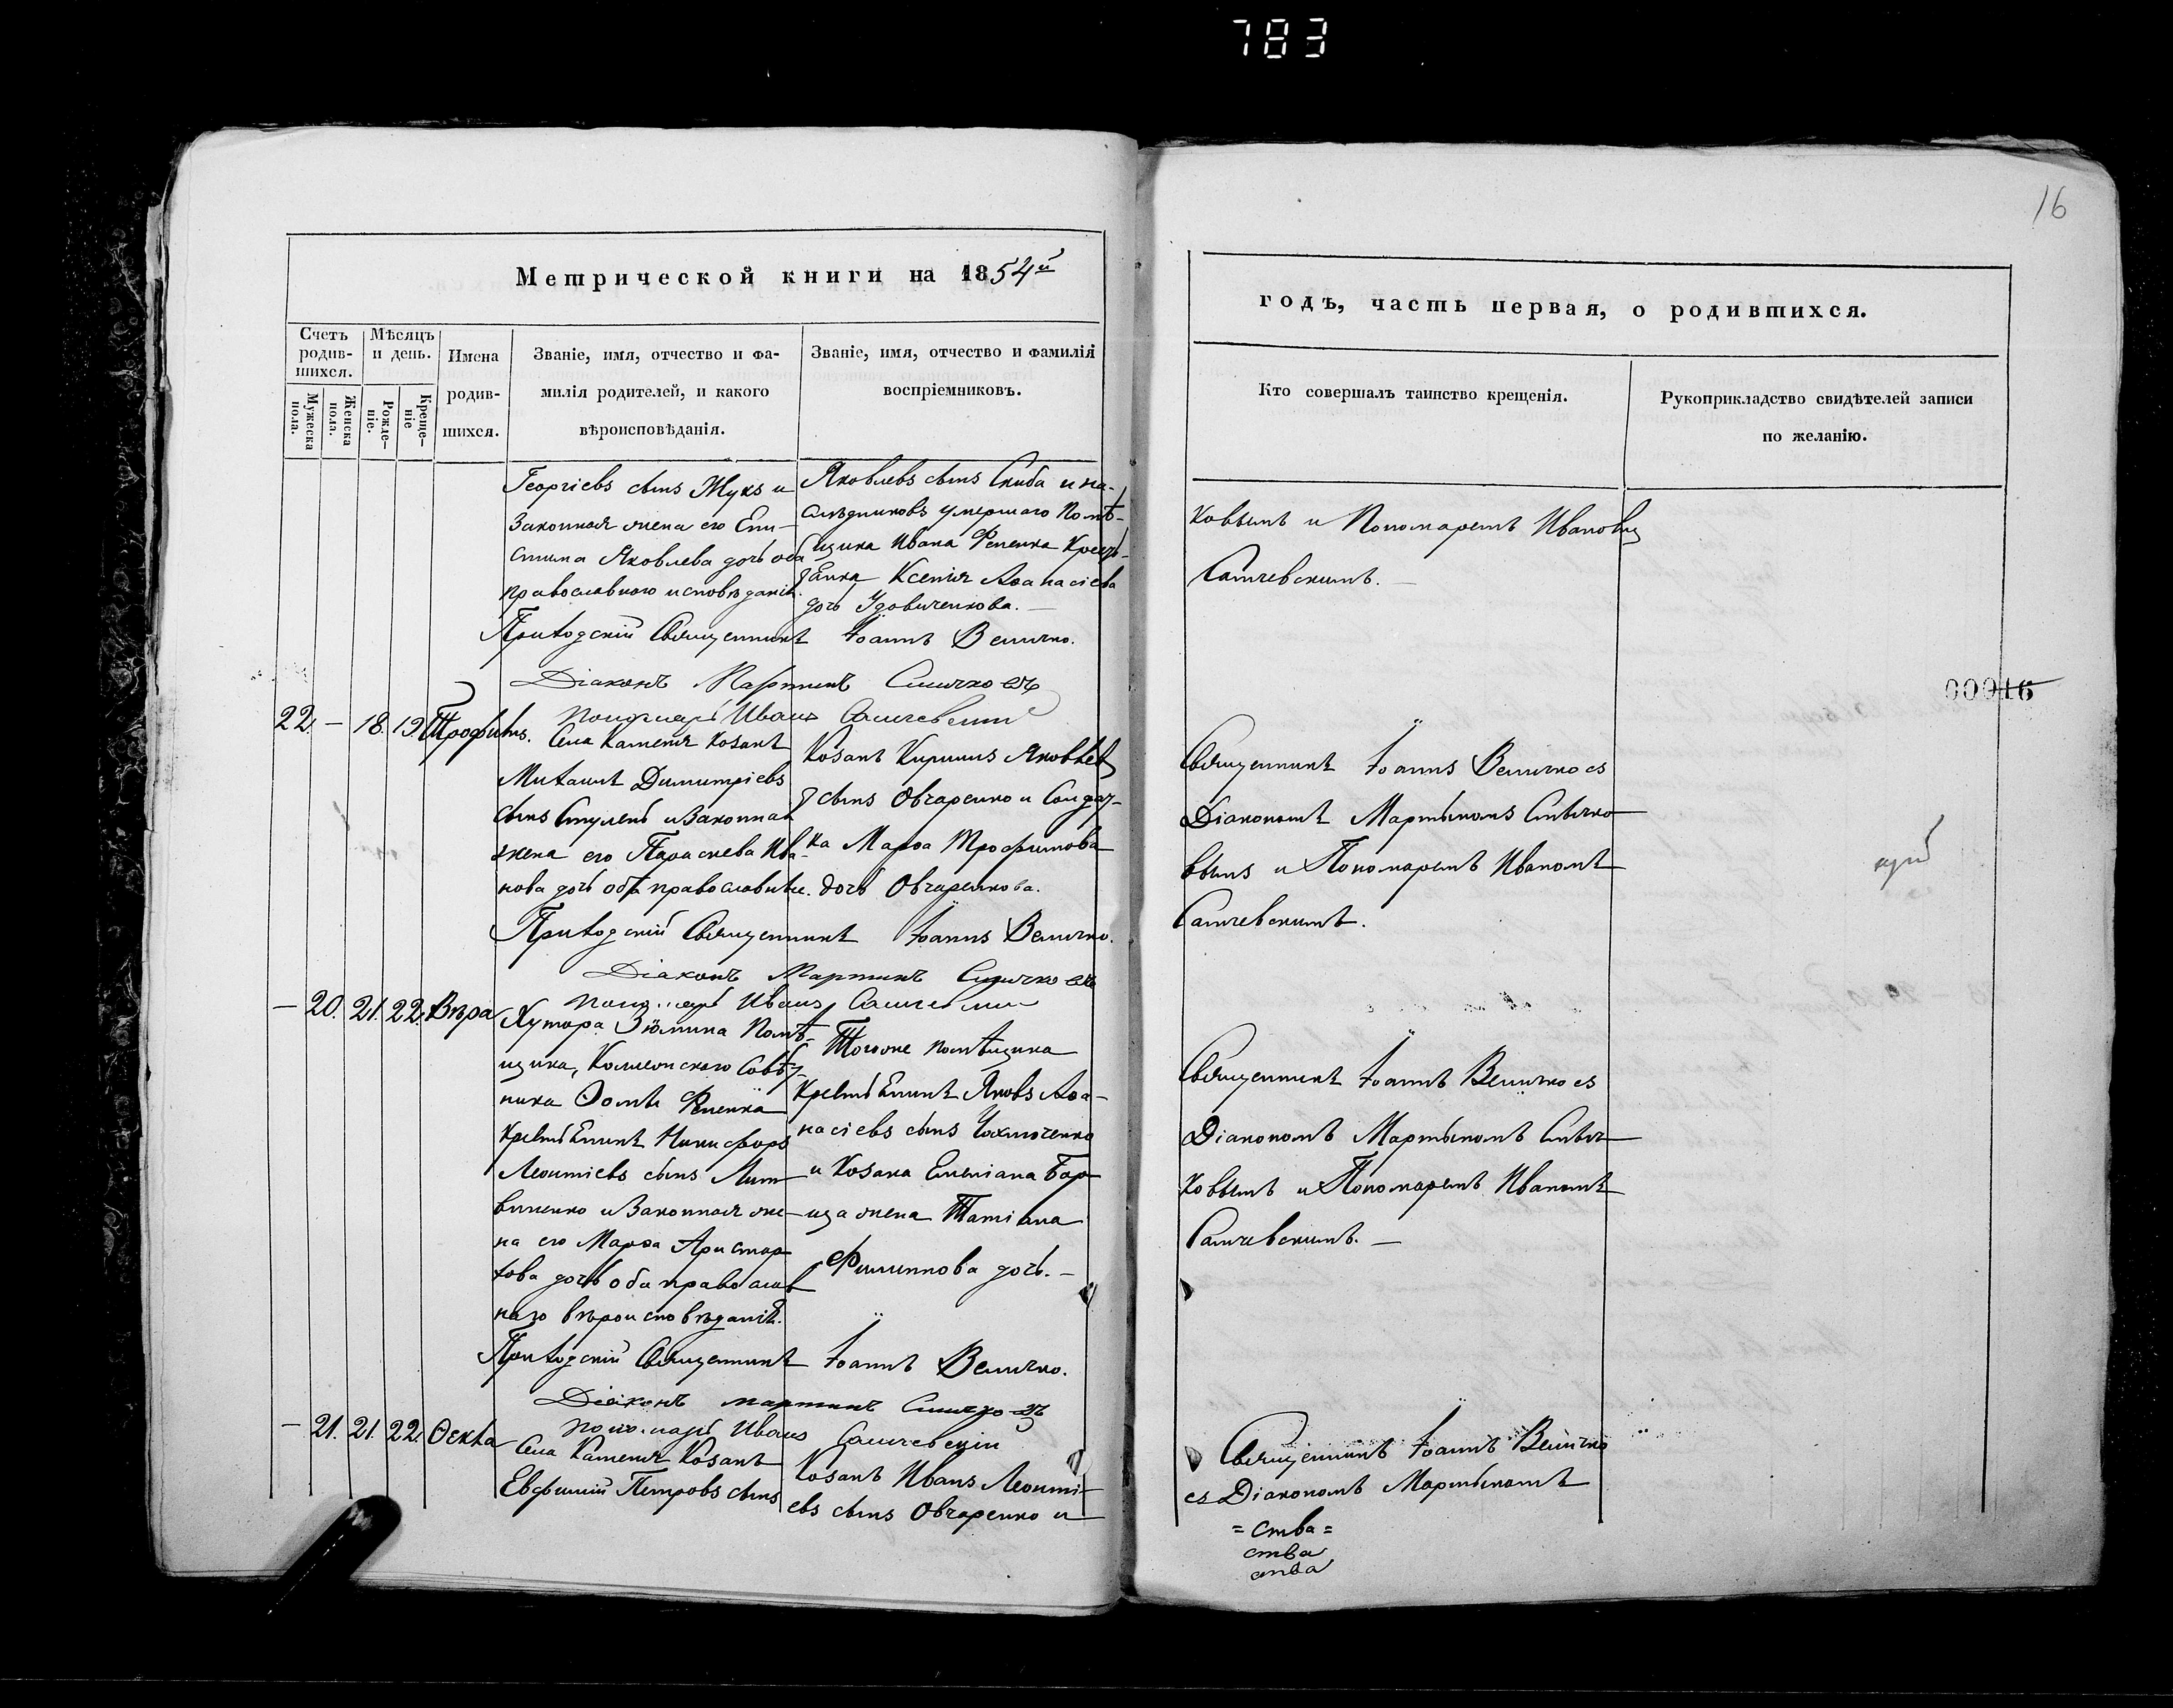 783
16
Метрической книги на 1854й
годъ, часть первая, о родившихся.
Счетъ родив-шихся.
Мужеска пола.
Женска пола.
Мѣсяцъ и день.
Рожде-ніе.
Креще-ніе
Имена
родив-
шихся.
Званіе, имя, отчество и фа-
милія родителей, и какого
вѣроисповѣданія.
Званіе, имя, отчество и фамилія
воспріемниковъ.
Кто совершалъ таинство крещенія.
Рукоприкладство свидѣтелей записи
по желанію.
Георгіевъ сынъ Жукъ и
Законная жена его Епи-
стима Яковлева дочь оба
православного исповѣданія.
Яковлевъ сынъ Скиба и на-
слѣдниковъ умершаго Помѣ-
щика Ивана Репенка Кресть-
янка Ксенія Аѳанасіева
дочь Удовиченкова.
ковымъ и Пономаремъ Иваномъ
Самчевскимъ.
Приходскій Священникъ Іоаннъ Величко.
Діаконъ Мартинъ Сѣичковъ
Пономарь Иванъ Самчевскій
00016
22. — 18. 19. Трофимъ.
Села Каменя Козакъ
Михаилъ Димитріевъ
сынъ Стулень и Законная
жена его Параскева Ива-
нова дочь оба православные.
Козакъ Кирилъ Яковлевъ
сынъ Овчаренко и Солдат-
ка Марѳа Трофимова
дочь Овчаренкова.
Священникъ Іоаннъ Величко съ
Діакономъ Мартыномъ Сѣичко-
вымъ и Пономаремъ Иваномъ
Самчевскимъ.
Приходскій Священникъ Іоаннъ Величко.
Діаконъ Мартинъ Сѣичковъ
Пономарь Иванъ Самчевскій
— 20. 21. 22. Вѣра
Хутора Помѣ-
щика, Коллежскаго Совѣт-
ника Ѳомы Репенка
Крестьянинъ Никифоръ
Леонтіевъ сынъ Лит-
виненко и Законная же-
на его Марѳа Аристар-
хова дочь оба православ
наго вѣроисповѣданія.
Тогоже помѣщика
Крестьянинъ Яковъ Аѳа-
насіевъ сынъ
и Козака Емеліана Бор-
ща жена Татіана
Филиппова дочь.
Священникъ Іоаннъ Величко съ
Діакономъ Мартыномъ Сѣич-
ковымъ и Пономаремъ Иваномъ
Самчевскимъ.
Приходскій Священникъ Іоаннъ Величко.
Діаконъ Мартинъ Сѣичковъ
Пономарь Иванъ Самчевскій
— 21. 21. 22. Ѳекла
Села Каменя Козакъ
Евфимій Петровъ сынъ
Козакъ Иванъ Леонті-
евъ сынъ Овчаренко и
Священникъ Іоаннъ Величко
съ Діакономъ Мартыномъ
=ства=
ства
ства